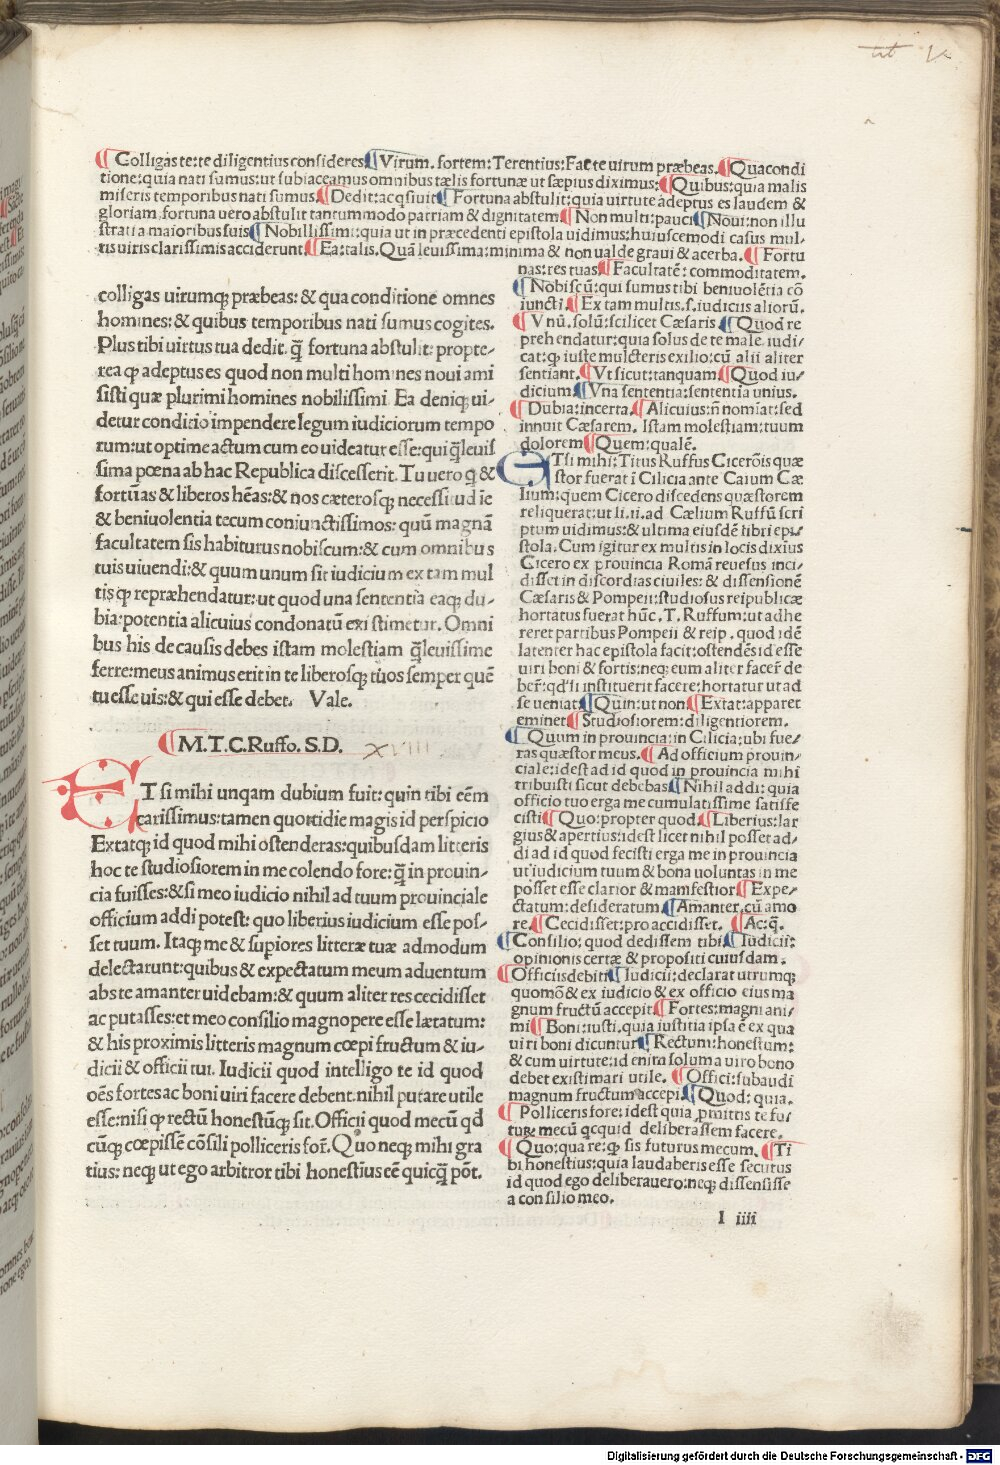 ¶ Colligas te: te diligentius consideres ¶ Virum. fortem: Terentius: Fac te uirum præbeas. ¶ Qua condi
tione: quia nati sumus: ut subiaceamus omnibus tælis fortunæ ut sæpius diximus: ¶ Quibus: quia malis
miseris temporibus nati sumus. ¶ Dedit: acq̃siuit ¶ Fortuna abstulit: quia uirtute adeptus es laudem &
gloriam. fortuna uero abstulit tantummodo patriam & dignitatem ¶ Non multi: pauci ¶ Noui: non illu
strati a maioribus suis ¶ Nobillissimi: quia ut in præcedenti epistola uidimus: huiuscemodi casus mul⸗
tis uiris clarissimis acciderunt. ¶ Ea: talis. Quã leuissima: minima & non ualde graui & acerba. ¶ Fortu
nas: res tuas ¶ Facultatẽ: commoditatem.
¶ Nobiscũ: qui sumus tibi beniuolẽtia cõ
iuncti. ¶ Ex tam multis. s. iudiciis aliorũ.
¶ Vnũ. solũ: scilicet Cæsaris ¶ Quod re
prehendatur: quia solus de te male iudi⸗
cat: ꝙ iuste mulcteris exilio: cũ alii aliter
sentiant. ¶ Vt sicut: tanquam ¶ Quod iu⸗
dicium ¶ Vna sententia: sententia unius.
¶ Dubia: incerta. ¶ Alicuius: ñ nomĩat: sed
innuit Cæsarem. Istam molestiam: tuum
dolorem ¶ Quem: qualẽ.
colligas uirumq; præbeas: & qua conditione omnes
homines: & quibus temporibus nati sumus cogites.
Plus tibi uirtus tua dedit. q̃ fortuna abstulit: propte⸗
rea ꝙ adeptus es quod non multi homines noui ami
sisti quæ plurimi homines nobilissimi. Ea deniq; ui⸗
detur conditio impendere legum iudiciorum tempo
rum: ut optime actum cum eo uideatur esse: qui q̃leuis
sima pœna ab hac Republica discesserit. Tu uero q &
fortũas & liberos hẽas: & nos cæterosq; necessitudĩe
& beniuolentia tecum coniunctissimos: quũ magnã
facultatem sis habiturus nobiscum: & cum omnibus
tuis uiuendi: & quum unum sit iudicium ex tam mul
tis ꝙ repræhendatur: ut quod una sententia eaq; du⸗
bia: potentia alicuius condonatũ existimetur. Omni
bus his de causis debes istam molestiam q̃leuissime
ferre: meus animus erit in te liberosq; tuos semper quẽ
tu esse uis: & qui esse debet. Vale.
¶ M.T.C. Ruffo. S.D. XVIII
ETsi mihi unqam dubium fuit: quin tibi eẽm
carissimus: tamen quottidie magis id perspicio
Extatq; id quod mihi ostenderas: quibusdam litteris
hoc te studiosiorem in me colendo fore: q̃ in prouin⸗
cia fuisses: & si meo iudicio nihil ad tuum prouinciale
officium addi potest: quo liberius iudicium esse pos⸗
set tuum. Itaq; me & supiores litteræ tuæ admodum
delectarunt: quibus & expectatum meum aduentum
abs te amanter uidebam: & quum aliter res cecidisset
ac putasses: et meo consilio magnopere esse lætatum:
& his proximis litteris magnum cœpi fructum & iu⸗
dicii & officii tui. Iudicii quod intelligo te id quod
oẽs fortes ac boni uiri facere debent. nihil putare utile
esse: nisi ꝙ rectũ honestũq; sit. Officii quod mecũ qd
cũq; cœpissẽ cõsili polliceris for̃. Quo neq; mihi gra
tius: neq; ut ego arbitror tibi honestius eẽ quicq̃ põt.
ETsi mihi: Titus Ruffus Cicerõis quæ
stor fuerat ĩ Cilicia ante Caium Cæ
lium: quem Cicero discedens quæstorem
reliquerat: ut li. ii. ad Cælium Ruffũ scri
ptum uidimus: & ultima eiusdẽ libri epi⸗
stola. Cum igitur ex multis in locis dixius
Cicero ex prouincia Romã reuesus inci⸗
disset in discordias ciuiles: & dissensionẽ
Cæsaris & Pompeii: studiosus reipublicæ
hortatus fuerat hũc. T. Ruffum: ut adhe
reret partibus Pompeii & reip. quod idẽ
latenter hac epistola facit: ostendẽs id esse
uiri boni & fortis: neq; eum aliter facer̃ de
ber̃: qd'si instituerit facere: hortatur ut ad
se ueniat ¶ Quin: ut non ¶ Extat: apparet
eminet ¶ Studiosiorem: diligentiorem.
¶ Quum in prouincia: in Cilicia: ubi fue⸗
ras quæstor meus. ¶ Ad officium prouin⸗
ciale: idest ad id quod in prouincia mihi
tribuisti sicut debebas ¶ Nihil addi: quia
officio tuo erga me cumulatissime satisfe
cisti ¶ Quo: propter quod. ¶ Liberius: lar
gius & apertius: idest licet nihil posset ad⸗
di ad id quod fecisti erga me in prouincia
ut iudicium tuum & bona uoluntas in me
posset esse clarior & manifestior ¶ Expe⸗
ctatum: desideratum ¶ Amanter. cũ amo
re. ¶ Cecidisset: pro accidisset. ¶ Ac: q̃.
¶ Consilio: quod dedissem tibi ¶ Iudicii:
opinionis certæ & propositi cuiusdam.
¶ Officiis debiti ¶ Iudicii: declarat utrumq;
quomõ & ex iudicio & ex officio eius ma
gnum fructũ accepit ¶ Fortes: magni ani⸗
mi ¶ Boni: iusti. quia iustitia ipsa ẽ ex qua
uiri boni dicuntur ¶ Rectum: honestum:
& cum uirtute: id enim solum a uiro bono
debet existimari utile. ¶ Offici: subaudi
magnum fructum accepi. ¶ Quod: quia.
¶ Polliceris fore: idest quia p̃mittis te fu⸗
tur̃ mecũ qcquid deliberassem facere.
¶ Quo: qua re: ꝙ sis futurus mecum. ¶ Ti
bi honestius: quia laudaberis esse secutus
id quod ego deliberauero: neq; dissensisse
a consilio meo.
I iiii
Digitalisierung gefördert durch die Deutsche Forschungsgemeinschaft - DFG